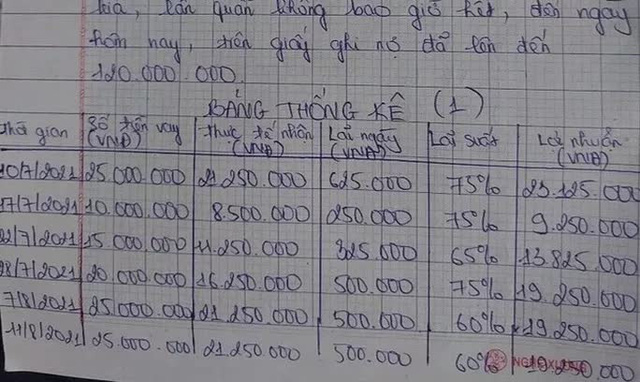 kia, lần quần không bao giờ hết, đến ngay
hôm nay, tiền giấy ghi nợ đã lên đến
120.000.000.
BẢNG THỐNG KÊ (1)
Thời gian Số tiền vay (VNĐ) Thực tế nhận (VNĐ) Lãi ngày (VNĐ) Lãi suất Lợi nhuận (VNĐ)
10/7/2021 25.000.000 21.250.000 625.000 75% 23.125.000
17/7/2021 10.000.000 8.500.000 250.000 75% 9.250.000
22/7/2021 15.000.000 11.250.000 325.000 65% 13.825.000
28/7/2021 20.000.000 16.250.000 500.000 75% 19.250.000
7/8/2021 25.000.000 21.250.000 500.000 60% 19.250.000
11/8/2021 25.000.000 21.250.000 500.000 60% 19.250.000